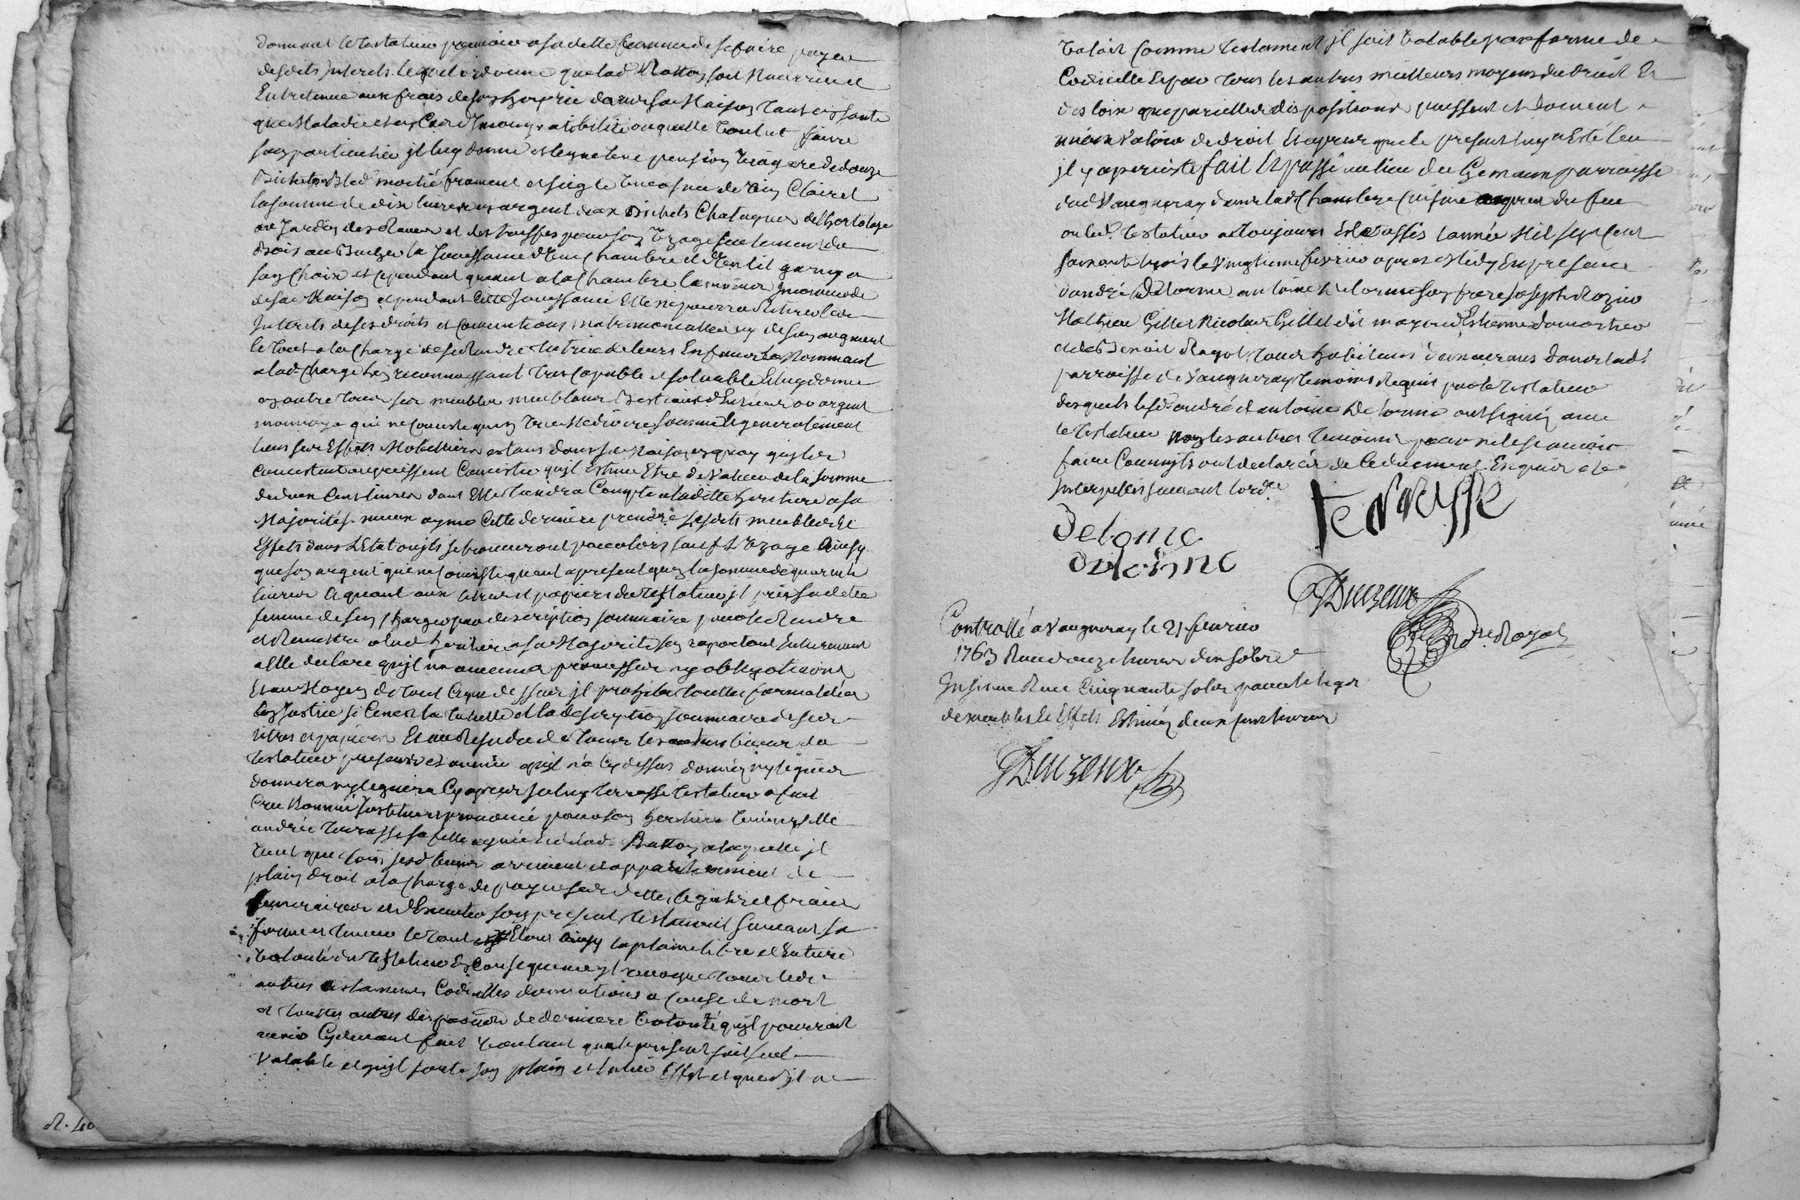 donnant le testateur pouvoir a sadette femme de se faire payer
desdits interets lequel ordonne que lad. Ratton soit nourrie et
Entretenue aux frais de son hoyrie dans sa Maison tant en santé
que Maladie et en Cas d'Incompatibilité auquelle veut et faire
son particulier il luy donne et legue une pension viagere de douze
Bichets Bled moitié froment et seigle une asnée de vin Clairet
la somme de dix livres en argent deux Bichets Chataignes de l'hortolage
au Jardin des raves et des truffes pour son Uzage seulement du
Bois au Bucher la Jouissance d'une Chambre et d'un lit garny a
son choix et cependant quant a la chambre la moins Incommode
de sa Maison et pendant cette Jouissance Elle ne pourra retirer les
Interets de ses droits et conventions matrimonialles ny de son augment
le tout a la charge de se rendre tutrice de leurs Enfans la Nommant
a lad. charge la reconnoissant tres capable et solvable et luy donne
en outre tous ses meubles meublans Bestiaux Denrées or argent
monnoyé qui ne consiste qu'en tres Mediocre somme et generalement
tous ses Effets Mobilliers estans dans sa Maison en quoy qu'ils
consistent ou puissent Consister qu'il Estime Etre de Valeur de la somme
de deux Cent livres dont Elle tiendra Compte a ladette heritiere a sa
Majorité si mieux ayme Cette derniere prendre lesdits meubles et
Effets dans l'Etat ou ils se trouveront pour lors sauf l'Uzage ainsy
que son argent qui ne Consiste quant a present qu'en la somme de quarente
livres Et quant aux titres et papiers du Testateur il prie sadette
femme de s'en charger par description sommaire pour les Rendre
et Remettre a lad. heritiere a sa Majorité s'en raportant Entierement
a Elle declare qu'il n'a aucunes promesses ny obligations
Et au Moyen de tout Ce que dessus il prohibe touttes formalités
de Justice si Ce n'est la tutelle et la description sommaire de ses
titres et papiers Et au Residu de Tous les autres biens du
testateur presents et avenir qu'il n'a Cy dessus donnés ny legués
donnera ny leguera Cy apres led. Terrasse testateur a fait
Cree Nommé Institué et prononcé pour son heritiere Universelle
andrée terrasse sa fille a quée de lad. Ratton a laquelle il
veut que tous sesd. biens arrivent et appartiennent de
plein droit a la charge de payer ses dettes legats et fraix
funeraires et d'Executer son present testament suivant sa
forme et teneur le tout Etant ainsy la plaine libre et Entiere
Volonté du Testateur En Consequence il revoque tous les
autres testamens Codicilles donnations a cause de mort
et touttes autres dispositions de derniere volonté qu'il pourroit
avoir Cydevant fait voulant que le present soit seul
Valable et qu'il sorte son plein et Entier Effet et que s'il ne
Valoit comme testament il soit Valable par forme de
Codicille Et par tous les autres meilleurs moyens de droit Et
des loix que pareilles dispositions puissent et doivent
mieux Valoir de droit Et apres que le present luy a Esté leu
il y a persisté fait Et passé au lieu du parroisse
dud. Vaugneray dans lad. Chambre Cuisine aupres du feu
ou led. testateur a toujours Esté assis l'année Mil sept Cent
soixante trois le Vingtieme fevrier apres Midy En presence
d'andré Delorme antoine Delorme son frere Joseph Rozier
Mathieu Gillet Nicolas Gillet dit mayoud Estienne dumortier
et Benoit Ragot tous habitans dans lad.
parroisse de Vaugneray temoins Requis par le testateur
desquels lesd. andré et antoine Delorme ont signés avec
le testateur non les autres temoins pour ne le scavoir
faire Comm'ils ont declaré de Ce duement Enquis et
Interpellés suivant l'ordce.
Delorme
terrasse
delorme
Duzeux
Nre Royal
Controllé a Vaugneray le 21 fevrier
1763 Receu douze livres dix sols
Insinué Receu Cinquante sols pour le legs
de meubles et Effets Estimés deux cent livres
Duzeux